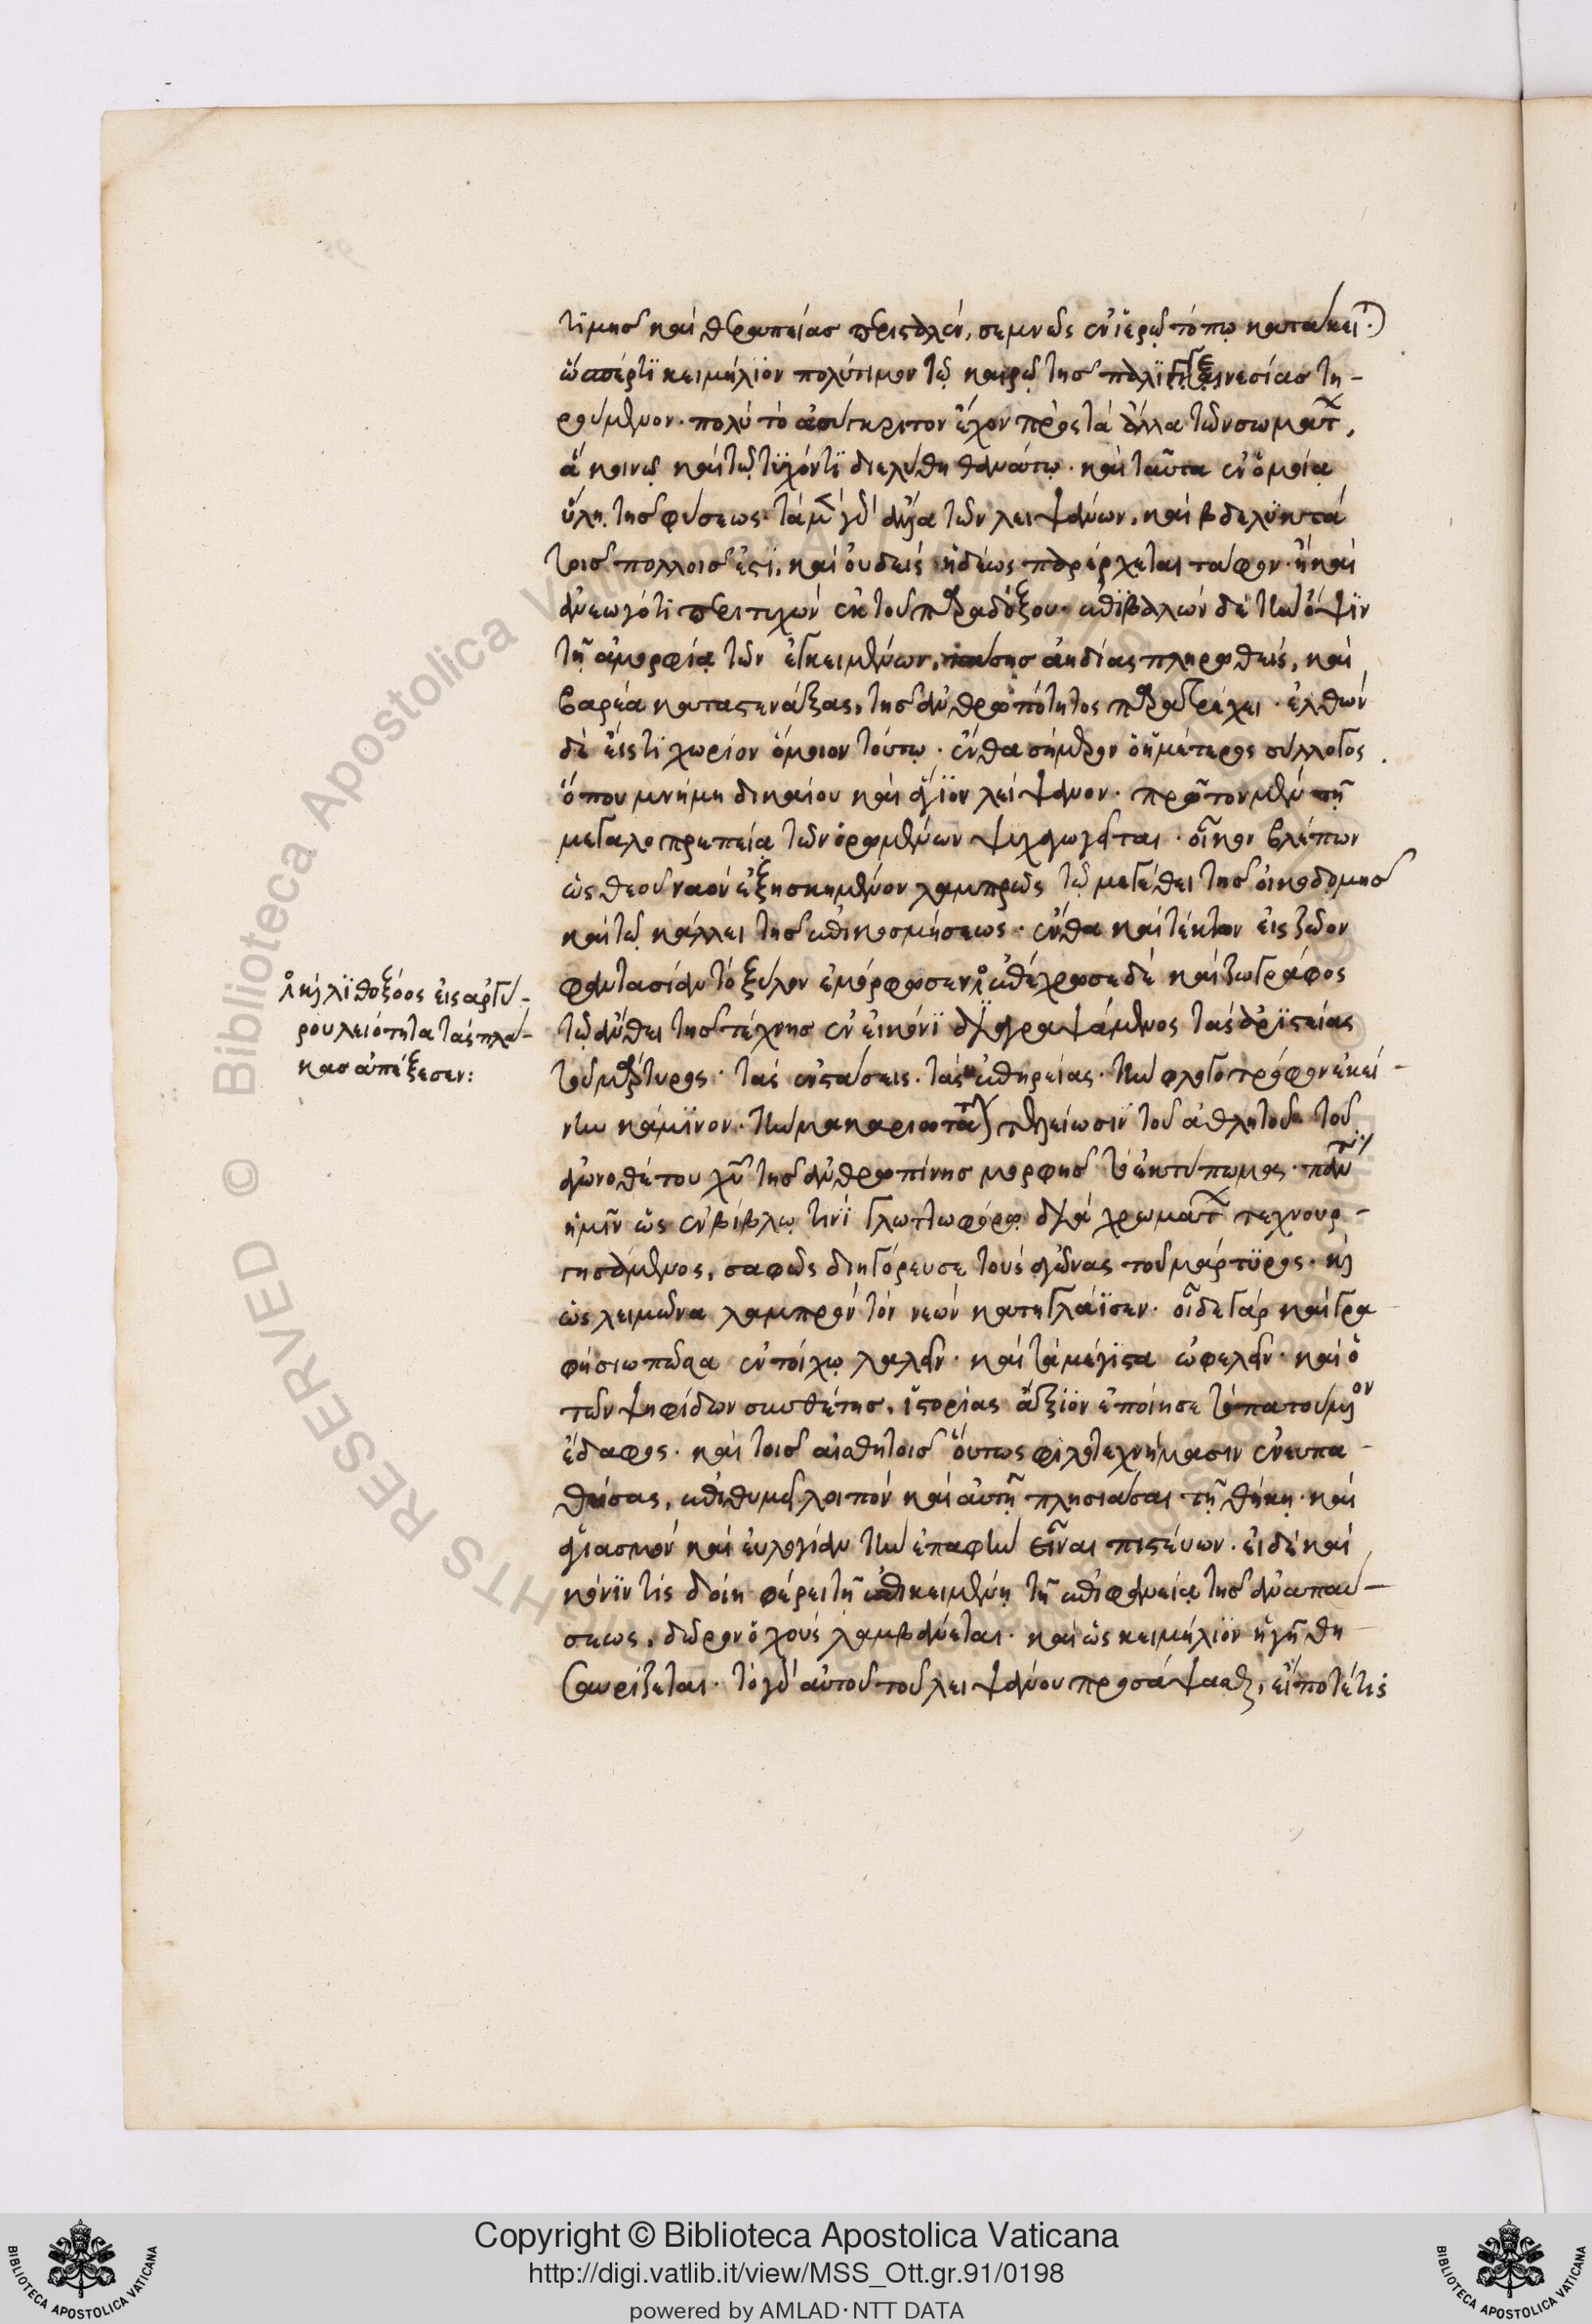 τϊμησ καὶ θεραπείας περισταλὲν, σεμνῶς ἐν ἱερῶ τόπω κατάκειται·
ὥσπέρ τϊ κειμήλϊον πολύτιμον τῶ καιρῶ τησ παλιγγενεσίασ τη-
ρούμενον· πολὺ τὸ ἀσύγκριτον ἔχον πρὸς τὰ ἄλλα τῶν σωμάτων,
ἃ κοινῶ καὶ τῶ τϋχόντϊ διελύθη θανάτω· καὶ ταῦτα ἐν ὁμοία
ὕλη τησ φύσεως· τὰ μὲν γὰρ ἄλλα τῶν λειψάνων, καὶ βδελϋκτὰ
τοισ πολλοισ ἐστϊ, καὶ οὐδεὶς ἡδέως παρέρχεται τάφον· ἢ καὶ
ἀνεωγότϊ περιτυχὼν ἐκ τοῦ παραδόξου· ἐπϊβαλὼν δὲ τὴν ὄψϊν
τῆ ἀμορφία τῶν ἐγκειμένων, πάσησ ἀηδίας πληρωθεὶς, καὶ
βαρέα καταστενάξας, τησ ἀνθρωπότητος παρατρέχει· ἐλθὼν
δὲ εἰς τϊ χωρίον ὅμοιον τούτω· ἔνθα σήμερον ὁ ἡμέτερος σύλλογος
ὅπου μνήμη δικαίου καὶ ἅγϊον λείψανον· πρῶτον μὲν τῆ
μεγαλοπρεπεία τῶν ὁρωμένων ψυχαγωγεῖται· οἶκον βλέπων
ὡς θεοῦ ναὸν ἐξησκημένον λαμπρῶς τῶ μεγέθει τησ οἰκοδομησ
καὶ τῶ κάλλει τησ ἐπικοσμήσεως· ἔνθα καὶ τέκτων εἰς ζώων
φαντασίαν τὸ ξύλον ἐμόρφωσεν· ἐπέχρωσε δὲ καὶ ζωγράφος
τῶ ἄνθει τησ τέχνησ ἐν εἰκόνϊ διαγραψάμενος τὰς ἀρϊστείας
τοῦ μάρτυρος· τὰς ἐνστάσεις· τὰς ἐπηρείας· τὴν φλογοτρόφον ἐκεί-
νην κάμϊνον· τὴν μακαριωτάτην τελείωσϊν τοῦ ἀθλητοῦ τοῦ
ἀγωνοθέτου χῦ τησ ἀνθρωπίνησ μορφησ τὸ ἐκτύπωμα· πάντα
ἡμῖν ὡς ἐν βίβλω τινϊ γλωττοφόρω διὰ χρωμάτων τεχνουρ-
γησάμενος, σαφῶς διηγόρευσε τοὺς ἀγῶνας τοῦ μάρτϋρος· καὶ
ὡς λειμῶνα λαμπρὸν τὸν νεὼν κατηγλάϊσεν· οἶδε γὰρ καὶ γρα-
φὴ σιωπῶσα ἐν τοίχω λαλεῖν· καὶ τὰ μέγϊστα ὠφελεῖν· καὶ ὁ
τῶν ψηφίδων συνθέτησ, ἱστορίας ἄξϊον ἐποίησε τὸ πατούμενον
ἔδαφος· καὶ τοισ αἰσθητοισ οὕτως φϊλοτεχνήμασιν ἐνευπα-
θήσας, ἐπιθυμεῖ λοιπὸν καὶ αὐτῆ πλησιάσαι τῆ θήκη· καὶ
ἁγιασμὸν καὶ εὐλογίαν τὴν ἐπαφὴν εἶναι πιστεύων· εἰ δὲ καὶ
κόνϊν τὶς δοίη φέρειν τῆ ἐπικειμένη τῆ ἐπιφανεία τησ ἀναπαύ-
σεως, δῶρον ὁ χοὺς λαμβάνεται· καὶ ὡς κειμήλϊον ἡ γῆ θη-
σαυρίζεται· τὸ γὰρ αὐτοῦ τοῦ λειψάνου προσάψασθαι, εἴ ποτέ τις
καὶ λϊθοξόος εἰς ἀργύ-
ρου λειότητα τὰς πλά-
κασ ἀπέξεσεν:
Copyright © Biblioteca Apostolica Vaticana
http://digi.vatlib.it/view/MSS_Ott.gr.91/0198
powered by AMLAD·NTT DATA